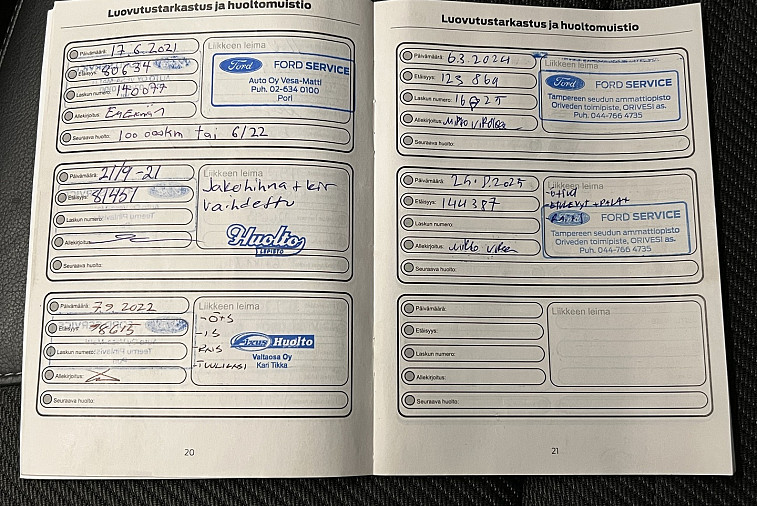 Luovutustarkastus ja huoltomuistio
Päivämäärä: 17.6.2021
Liikkeen leima
Etäisyys: 80634
Ford FORD SERVICE
Auto Oy Vesa-Matti
Puh. 02-634 0100
Pori
Laskun numero: 140077
Allekirjoitus:
Seuraava huolto: 100 000km tai 6/22
Päivämäärä: 21/9-21
Liikkeen leima
Etäisyys: 81451
Jakohihna + kir
vaihdettu
Laskun numero:
Allekirjoitus:
Huolto
Seuraava huolto:
Päivämäärä: 7.9.2022
Liikkeen leima
Etäisyys:
-Ö+S
-IS
-RNS
Laskun numero:
Fixus Huolto
Valtaosa Oy
Kari Tikka
Allekirjoitus:
Seuraava huolto:
20
Luovutustarkastus ja huoltomuistio
Päivämäärä: 6.3.2024
Liikkeen leima
Etäisyys: 123 864
Ford FORD SERVICE
Tampereen seudun ammattiopisto
Oriveden toimipiste, ORIVESI as.
Puh. 044-766 4735
Laskun numero:
Allekirjoitus: Mikko
Seuraava huolto:
Päivämäärä:
Liikkeen leima
Etäisyys: 144387
FORD SERVICE
Tampereen seudun ammattiopisto
Oriveden toimipiste, ORIVESI as.
Puh. 044-766 4735
Laskun numero:
Allekirjoitus: Mikko
Seuraava huolto:
Päivämäärä:
Liikkeen leima
Etäisyys:
Laskun numero:
Allekirjoitus:
Seuraava huolto:
21